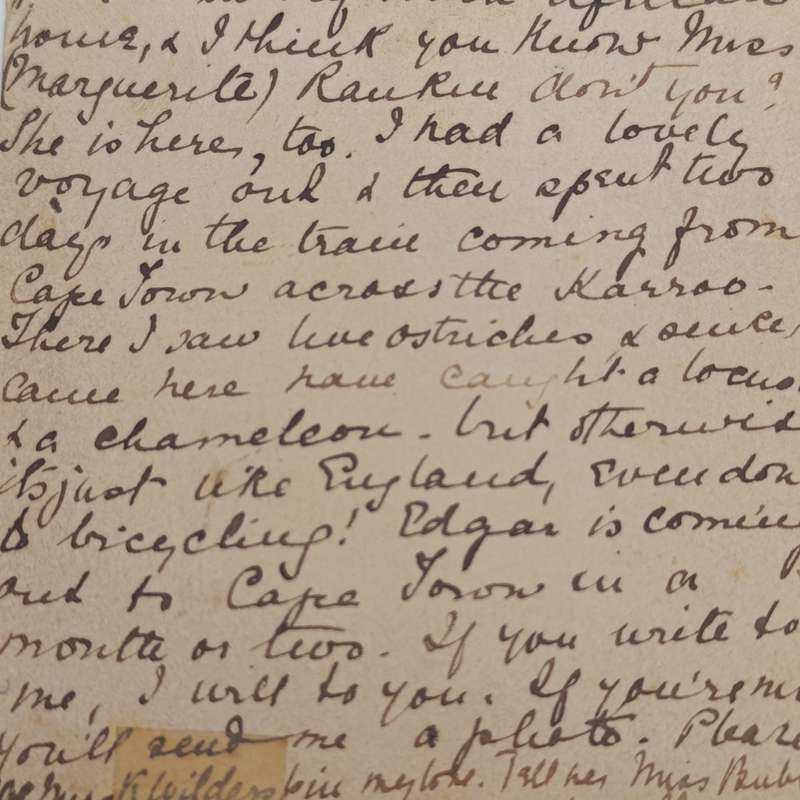 in my South African
home, & I think you know Miss
(Marguerite) Rankin don't you?
She is here, too. I had a lovely
voyage out & then spent two
days in the train coming from
Cape Town across the Karroo.
There I saw live ostriches & since
came here have caught a locus
& a chameleon. but otherwis
its just like England, even dow
to bicycling! Edgar is comin
out to Cape Town in a
month or two. If you write to
me, I will to you. If you're
you'll send me a photo. Pleas
my love. Tell her Miss